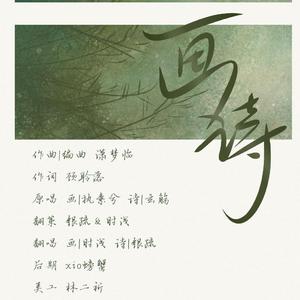 画诗
作曲|编曲 潇梦临
作词 顾聆落
原唱 画|执素兮 诗|玄觞
翻策 银疏&时浅
翻唱 画|时浅 诗|银疏
后期 xio螃蟹
美工 林二祈